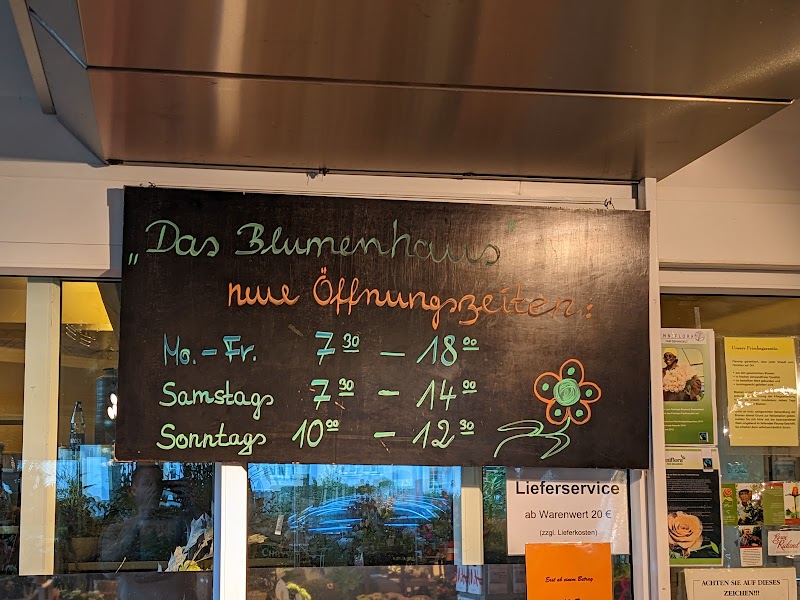 „Das Blumenhaus"
neue Öffnungszeiten:
Mo. - Fr. 7 30 - 18 00
Samstags 7 30 - 14 00
Sonntags 10 00 - 12 30
Lieferservice
ab Warenwert 20 €
(zzgl. Lieferkosten)
Erst ab einem Betrag
Unser Frischegarantie
ACHTEN SIE AUF DIESES
ZEICHEN!!!